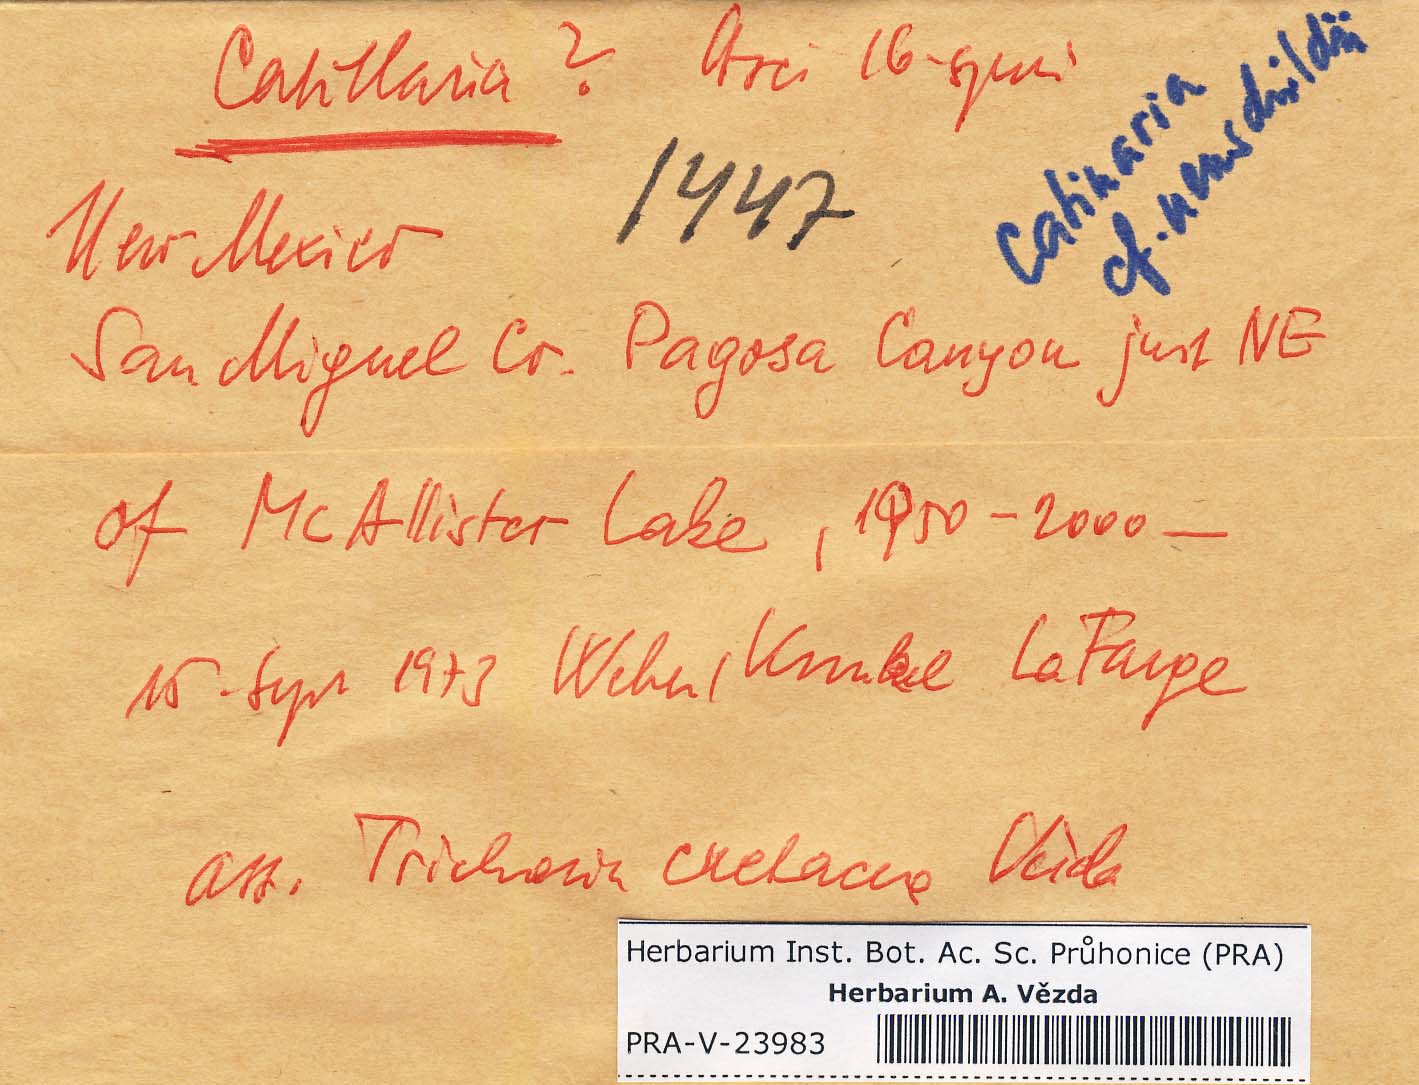 Catillaria ? Asci 16-spori
Catinaria
cf. neuschildii
1447
New Mexico
San Miguel Co. Pagosa Canyon just NE
of McAllister Lake, 1950-2000 —
15 Sept 1973 Weber, Knubel LaFarge
ass. Trichoria cretacea Vězda
Herbarium Inst. Bot. Ac. Sc. Průhonice (PRA)
Herbarium A. Vězda
PRA-V-23983